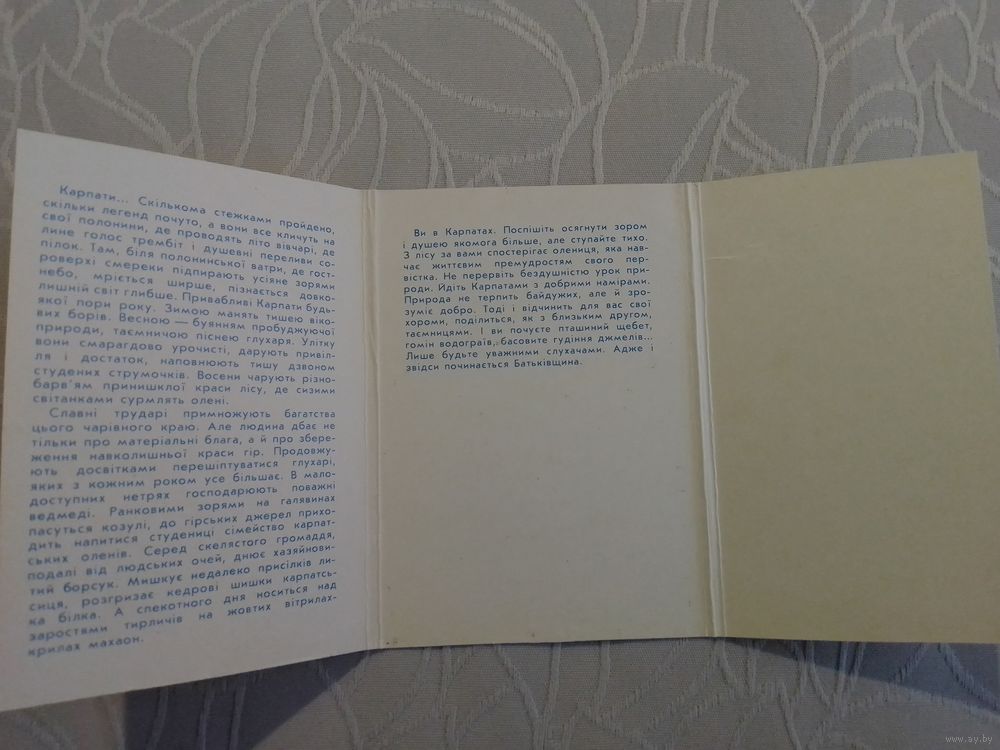 Карпати... Скількома стежками пройдено,
скільки легенд почуто, а вони все кличуть на
свої полонини, де проводять літо вівчарі, де
лине голос трембіт і душевні переливи со-
пілок. Там, біля полонинської ватри, де гост-
роверхі смереки підпирають усіяне зорями
небо, мріється ширше, пізнається довко-
лишній світ глибше. Привабливі Карпати будь-
якої пори року. Зимою манять тишею віко-
вих борів. Весною — буянням пробуджуючої
природи, таємничою піснею глухаря. Улітку
вони смарагдово урочисті, дарують привіл-
ля і достаток, наповнюють тишу дзвоном
студених струмочків. Восени чарують різно-
барв'ям принишклої краси лісу, де сизими
світанками сурмлять олені.
Славні трударі примножують багатства
цього чарівного краю. Але людина дбає не
тільки про матеріальні блага, а й про збере-
ження навколишньої краси гір. Продовжу-
ють досвітками перешіптуватися глухарі,
яких з кожним роком усе більшає. В мало-
доступних нетрях господарюють поважні
ведмеді. Ранковими зорями на галявинах
пасуться козулі, до гірських джерел прихо-
дить напитися студениці сімейство карпат-
ських оленів. Серед скелястого громаддя,
подалі від людських очей, днює хазяйнови-
тий борсук. Мишкує недалеко присілків ли-
сиця, розгризає кедрові шишки карпатсь-
ка білка. А спекотного дня носиться над
заростями тирличів на жовтих вітрилах-
крилах махаон.
Ви в Карпатах. Поспішіть осягнути зором
і душею якомога більше, але ступайте тихо.
З лісу за вами спостерігає олениця, яка нав-
чає життєвим премудростям свого пер-
вістка. Не перервіть бездушністю урок при-
роди. Йдіть Карпатами з добрими намірами.
Природа не терпить байдужих, але й зро-
зуміє добро. Тоді і відчинить для вас свої
хороми, поділиться, як з близьким другом,
таємницями. І ви почуєте пташиний щебет,
гомін водограїв, басовите гудіння джмелів...
Лише будьте уважними слухачами. Адже і
звідси починається Батьківщина.
www.ay.by